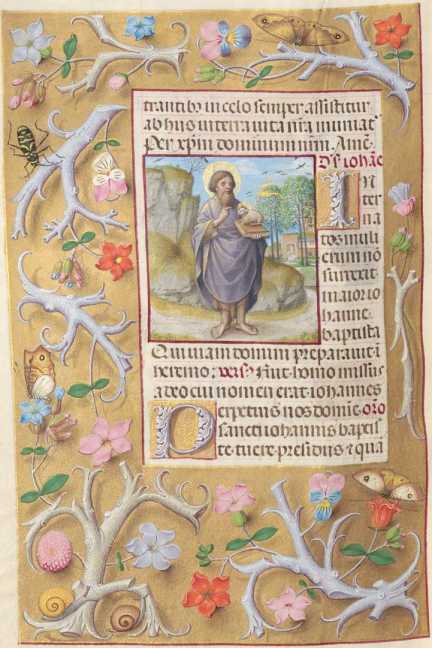 trantib9 in celo semper assistitur
ab hiis in terra vita nr̄a muniat᷑
Per xp̄m dominum nr̄m. Amē
De s. iohāne
In
ter
na
tos muli
erum nō
surrexit
maior io
hanne
baptista
Qui viam domini preparavit ī
heremo. vers Fuit homo missus
a deo cui nomen erat iohannes
Perpetuis nos domīe oro
sancti iohannis baptis
te tuere presidiis et qua